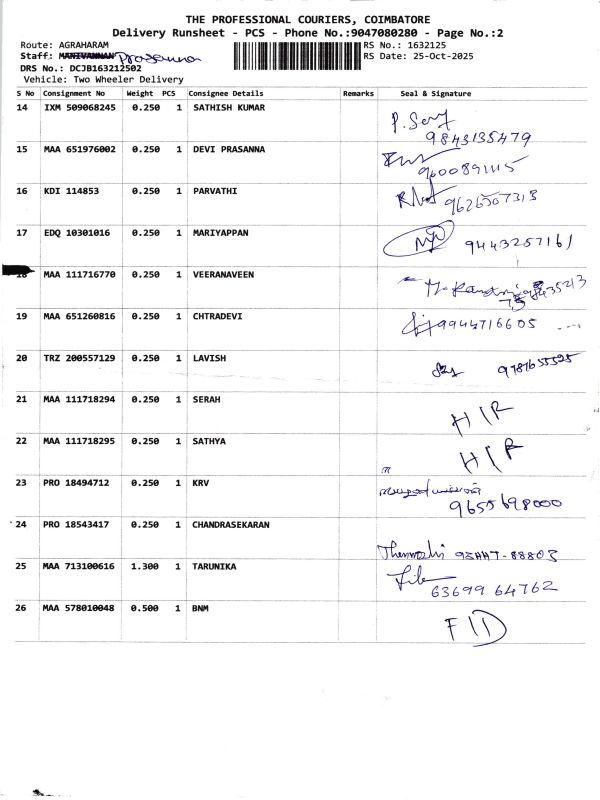 THE PROFESSIONAL COURIERS, COIMBATORE
Delivery Runsheet - PCS - Phone No.:9047080280 - Page No.:2
Route: AGRAHARAM RS No.: 1632125
Staff: MANIVANNAN Prasanna RS Date: 25-Oct-2025
DRS No.: DCJB163212502
Vehicle: Two Wheeler Delivery
S No Consignment No Weight PCS Consignee Details Remarks Seal & Signature
14 IXM 509068245 0.250 1 SATHISH KUMAR
9843135479
15 MAA 651976002 0.250 1 DEVI PRASANNA
16 KDI 114853 0.250 1 PARVATHI
17 EDQ 10301016 0.250 1 MARIYAPPAN 9443257161
18 MAA 111716770 0.250 1 VEERANAVEEN
19 MAA 651260816 0.250 1 CHTRADEVI 9944716605
20 TRZ 200557129 0.250 1 LAVISH
21 MAA 111718294 0.250 1 SERAH H/R
22 MAA 111718295 0.250 1 SATHYA H/R
23 PRO 18494712 0.250 1 KRV
9655698000
24 PRO 18543417 0.250 1 CHANDRASEKARAN
25 MAA 713100616 1.300 1 TARUNIKA
63699 64762
26 MAA 578010048 0.500 1 BNM